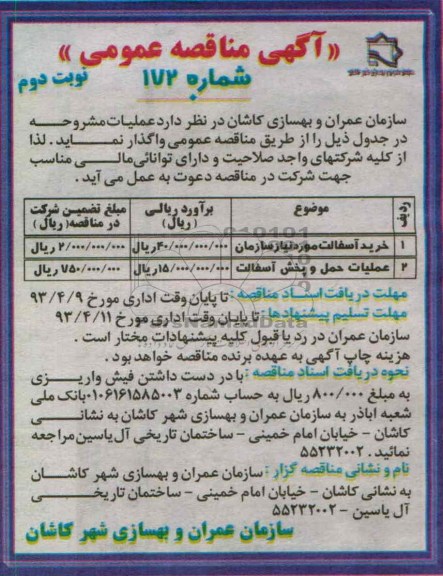 «آگهی مناقصه عمومی»
شماره ۱۷۲
نوبت دوم
سازمان عمران و بهسازی کاشان در نظر دارد عملیات مشروحه
در جدول ذیل را از طریق مناقصه عمومی واگذار نماید. لذا
از کلیه شرکتهای واجد صلاحیت و دارای توانائی مالی مناسب
جهت شرکت در مناقصه دعوت به عمل می آید.
ردیف موضوع برآورد ریالی (ریال) مبلغ تضمین شرکت در مناقصه (ریال)
۱ خرید آسفالت مورد نیاز سازمان ۴۰/۰۰۰/۰۰۰/۰۰۰ ریال ۲/۰۰۰/۰۰۰/۰۰۰ ریال
۲ عملیات حمل و پخش آسفالت ۱۵/۰۰۰/۰۰۰/۰۰۰ ریال ۷۵۰/۰۰۰/۰۰۰ ریال
مهلت دریافت اسناد مناقصه: تا پایان وقت اداری مورخ ۹۳/۴/۹
مهلت تسلیم پیشنهادها: تا پایان وقت اداری مورخ ۹۳/۴/۱۱
سازمان عمران در رد یا قبول کلیه پیشنهادات مختار است.
هزینه چاپ آگهی به عهده برنده مناقصه خواهد بود.
نحوه دریافت اسناد مناقصه: با در دست داشتن فیش واریزی
به مبلغ ۸۰۰/۰۰۰ ریال به حساب شماره ۰۱۰۶۱۶۱۵۸۵۰۰۳ بانک ملی
شعبه اباذر به سازمان عمران و بهسازی شهر کاشان به نشانی
کاشان - خیابان امام خمینی - ساختمان تاریخی آل یاسین مراجعه
نمائید. ۵۵۲۳۲۰۰۲
نام و نشانی مناقصه گزار: سازمان عمران و بهسازی شهر کاشان
به نشانی کاشان - خیابان امام خمینی - ساختمان تاریخی
آل یاسین - ۵۵۲۳۲۰۰۲
سازمان عمران و بهسازی شهر کاشان